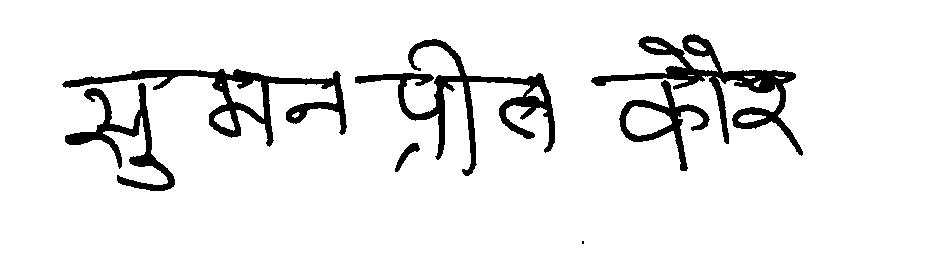 सुमन प्रीत कौर